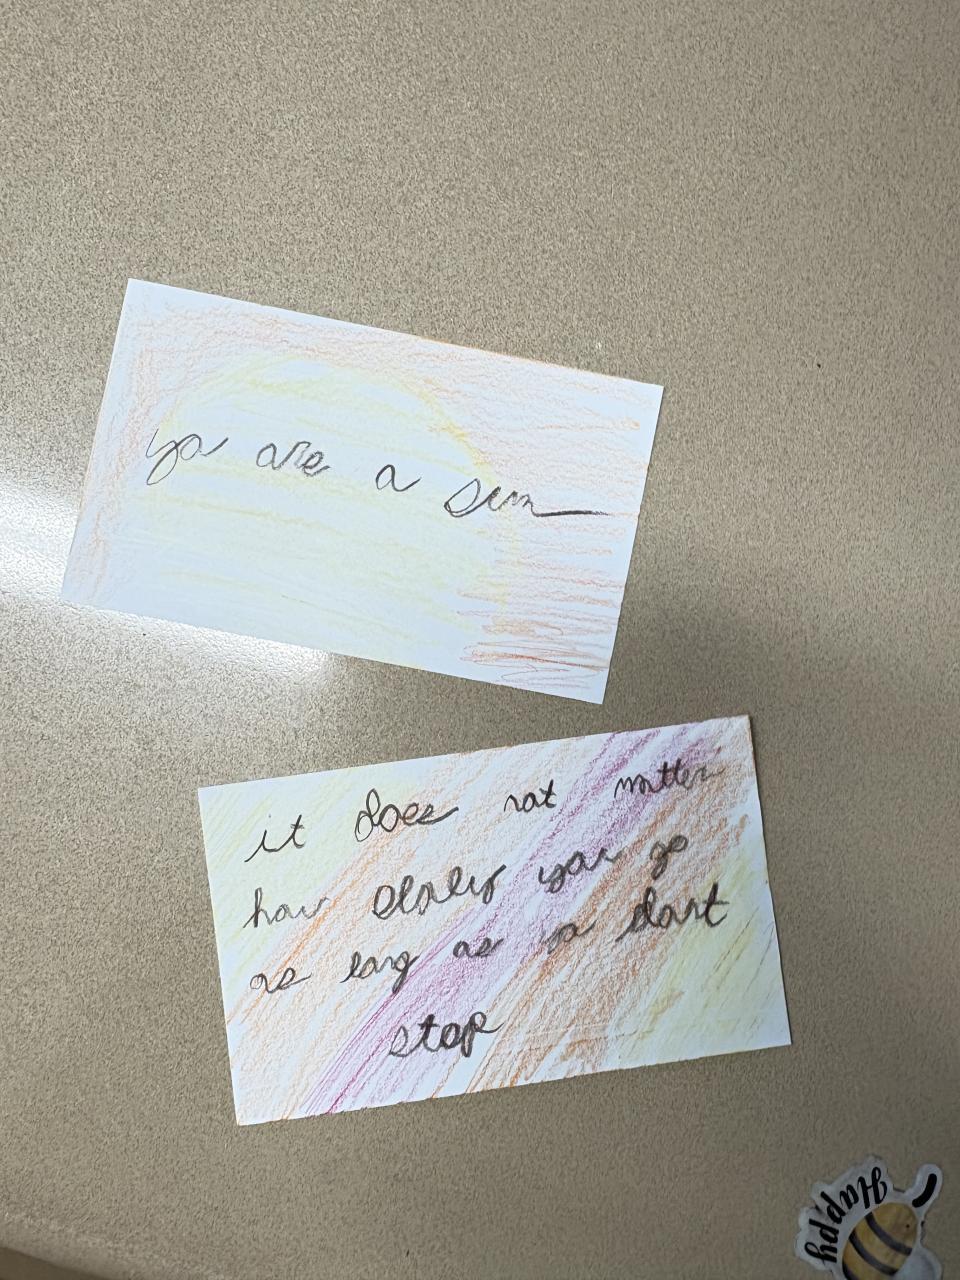 ya are a sun
it does not matter
how slowly you go
as long as ya dont
stop
Happy